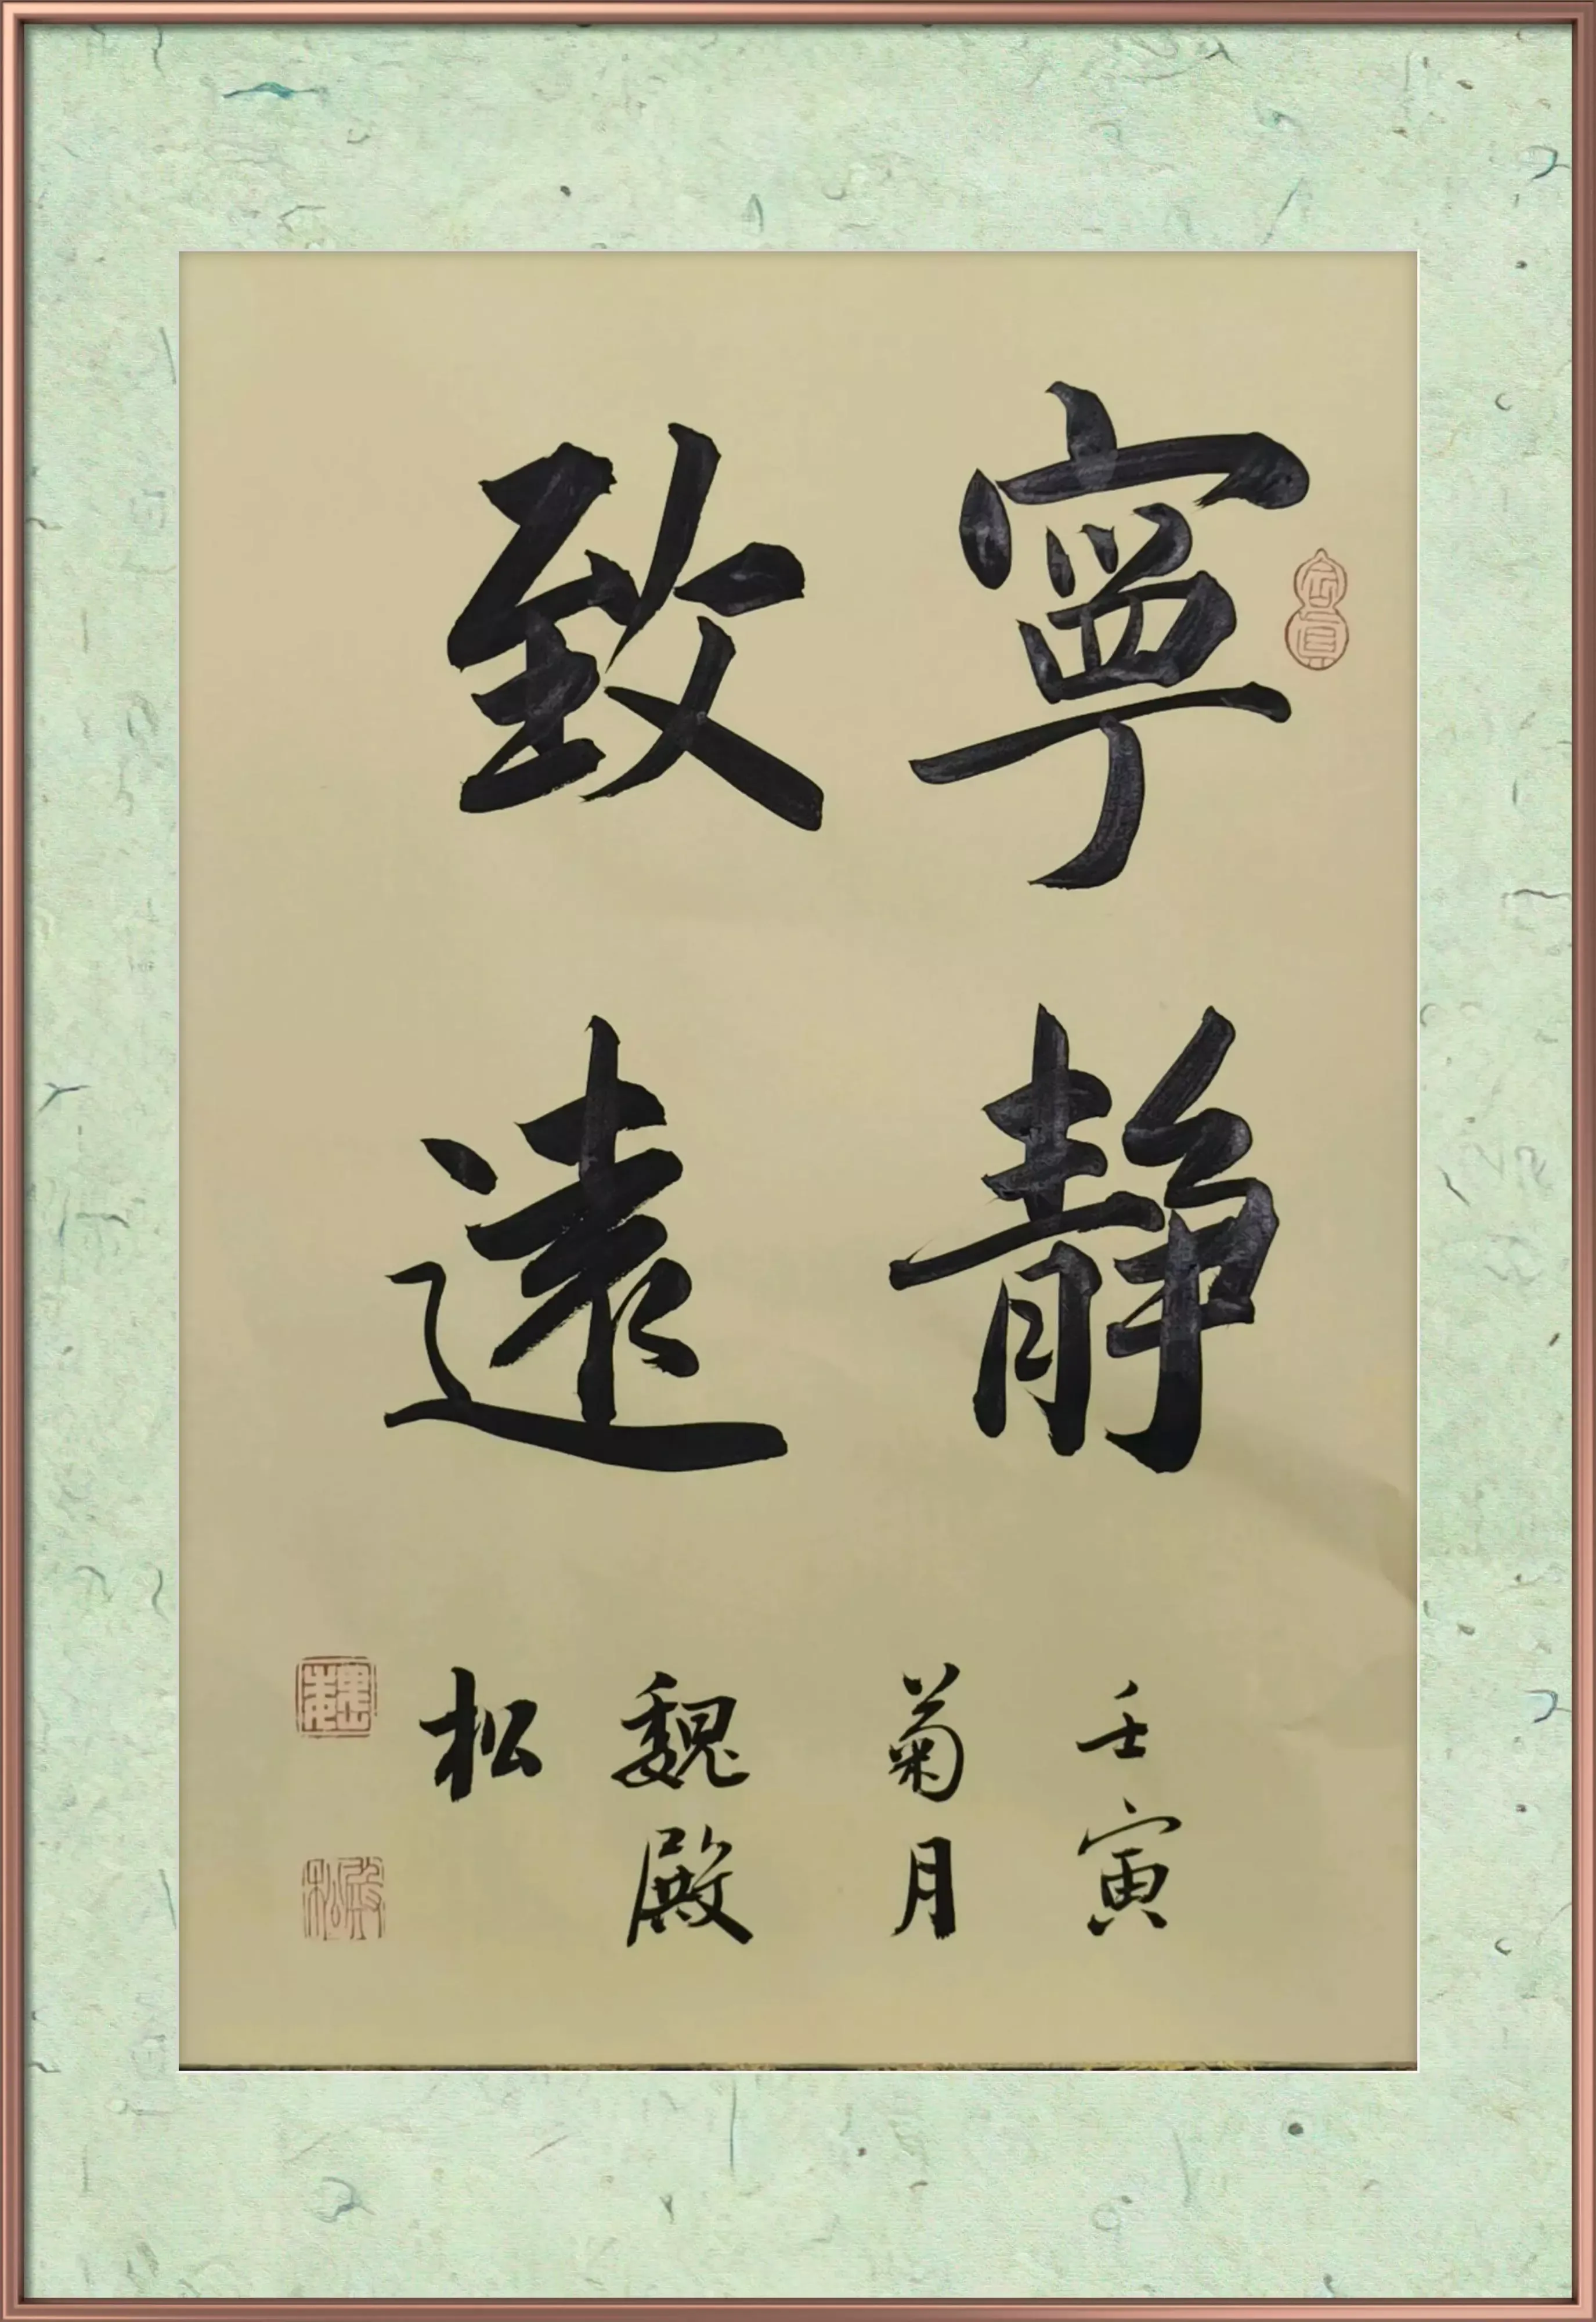 寧靜
致遠
壬寅
菊月
魏殿
松